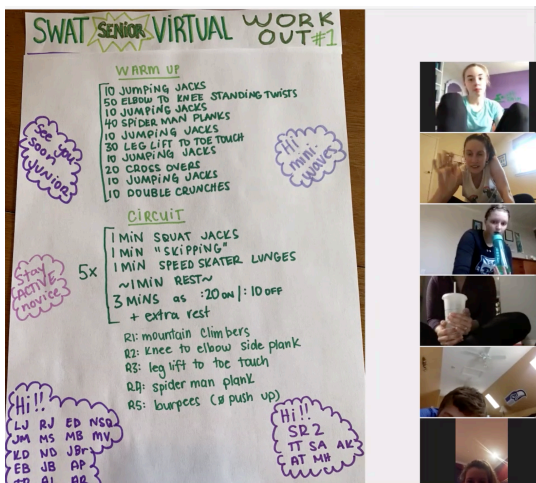 SWAT SENIOR VIRTUAL WORK
OUT #1
WARM UP
10 JUMPING JACKS
50 ELBOW TO KNEE STANDING TWISTS
10 JUMPING JACKS
40 SPIDER MAN PLANKS
10 JUMPING JACKS
30 LEG LIFT TO TOE TOUCH
10 JUMPING JACKS
20 CROSS OVERS
10 JUMPING JACKS
10 DOUBLE CRUNCHES
See you
soon
JUNIOR
Hi
mini-
waves
CIRCUIT
5x
1 MIN SQUAT JACKS
1 MIN "SKIPPING"
1 MIN SPEED SKATER LUNGES
~1 MIN REST~
3 MINS as :20 ON | :10 OFF
+ extra rest
Stay
ACTIVE
novice
R1: mountain climbers
R2: knee to elbow side plank
R3: leg lift to toe touch
R4: spider man plank
R5: burpees (ø push up)
Hi!!
LJ RJ ED NSQ
JM MS MB MV
KD ND JBr
EB JB AP
AI AR
Hi!!
SR2
TT SA AK
AT MH